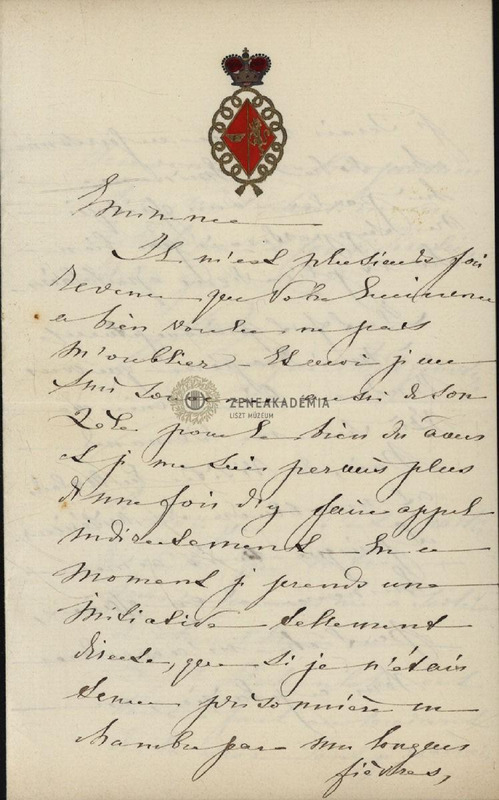 Eminence
Il m'est plusieurs fois
revenu que Votre Eminence
a bien voulu ne pas
m'oublier – Et moi je me
suis aussi de son
ZENEAKADÉMIA
LISZT MÚZEUM
zèle pour le bien des âmes
et je me suis permis plus
d'une fois d'y faire appel
indirectement. En ce
moment je prends une
initiative tellement
directe, que si je n'étais
tenue prisonnière en
chambre par mes longues
fièvres,